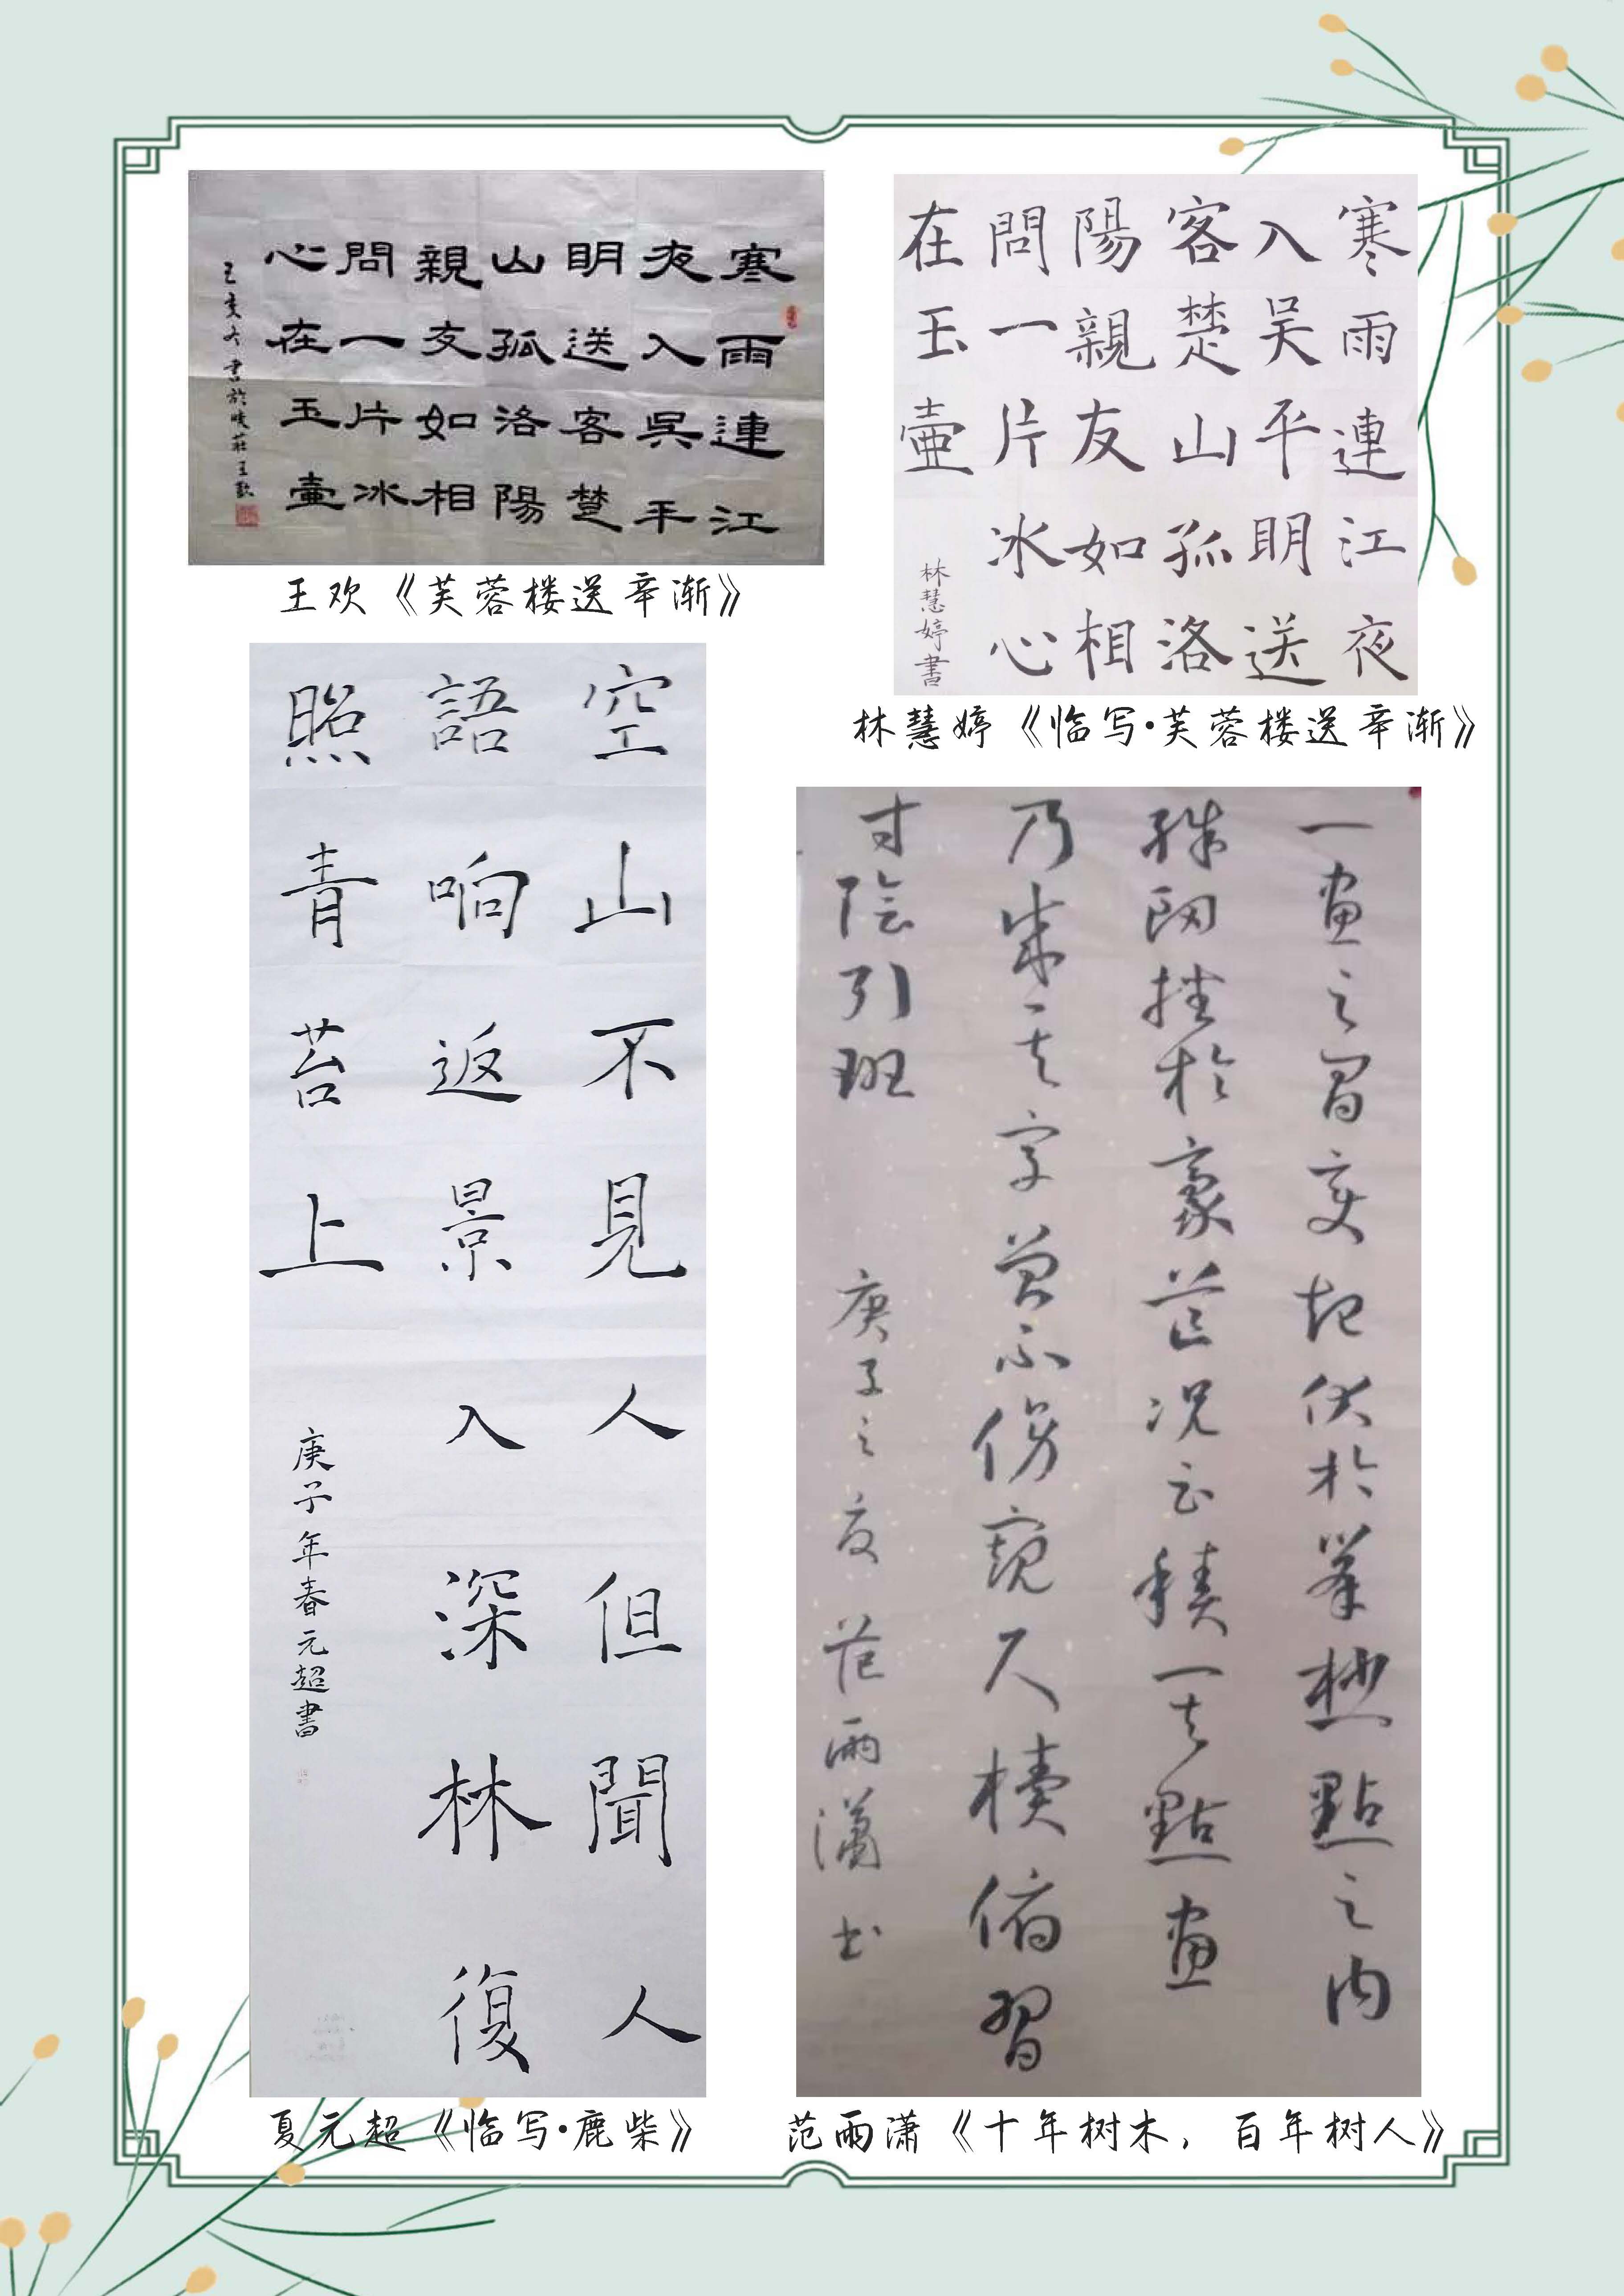 寒雨連江
夜入吳平
明送客楚
山孤洛陽
親友如相
問一片冰
心在玉壺
己亥冬書於莊王歡
王欢《芙蓉楼送辛渐》
寒雨連江夜
入吴平明送
客楚山孤洛
陽親友如相
問一片冰心
在玉壺
林慧婷書
林慧婷《临写·芙蓉楼送辛渐》
空山不見人但聞人
語响返景入深林復
照青苔上
庚子年春元超書
夏元超《临写·鹿柴》
一畫之間變起伏於峯杪一點之內
殊衄挫於豪芒況云積其點畫
乃成其字曾不傍窺尺牘俯習
寸陰引班
庚子之夏范雨瀟书
范雨潇《十年树木，百年树人》